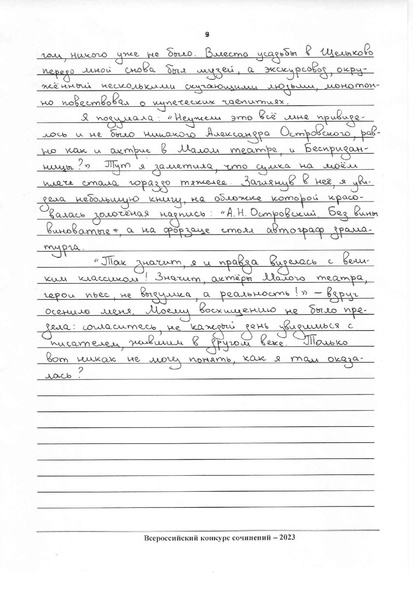 9
гом, никого уже не было. Вместо усадьбы в Щелыково
передо мной снова был музей, а экскурсовод, окру-
жённый несколькими скучающими людьми, монотон-
но повествовал о купеческих чаепитиях.
Я подумала: "Неужели это всё мне привиде-
лось и не было никакого Александра Островского, рав-
но как и актрис в Малом театре, и Бесприданн-
ницы?" Тут я заметила, что сумка на моём
плече стала гораздо тяжелее. Заглянув в неё, я уви-
дела небольшую книгу, на обложке которой красо-
валась золочёная надпись: "А.Н. Островский Без вины
виноватые", а на форзаце стоял автограф драма-
турга.
"Так значит, я и правда виделась с вели-
ким классиком! Значит, актёры Малого театра,
герои пьес, не выдумка, а реальность!" – вдруг
осенило меня. Моему восхищению не было пре-
дела: согласитесь, не каждый день увидишься с
писателем, жившим в другом веке. Только
вот никак не могу понять, как я там оказа-
лась?
Всероссийский конкурс сочинений – 2023